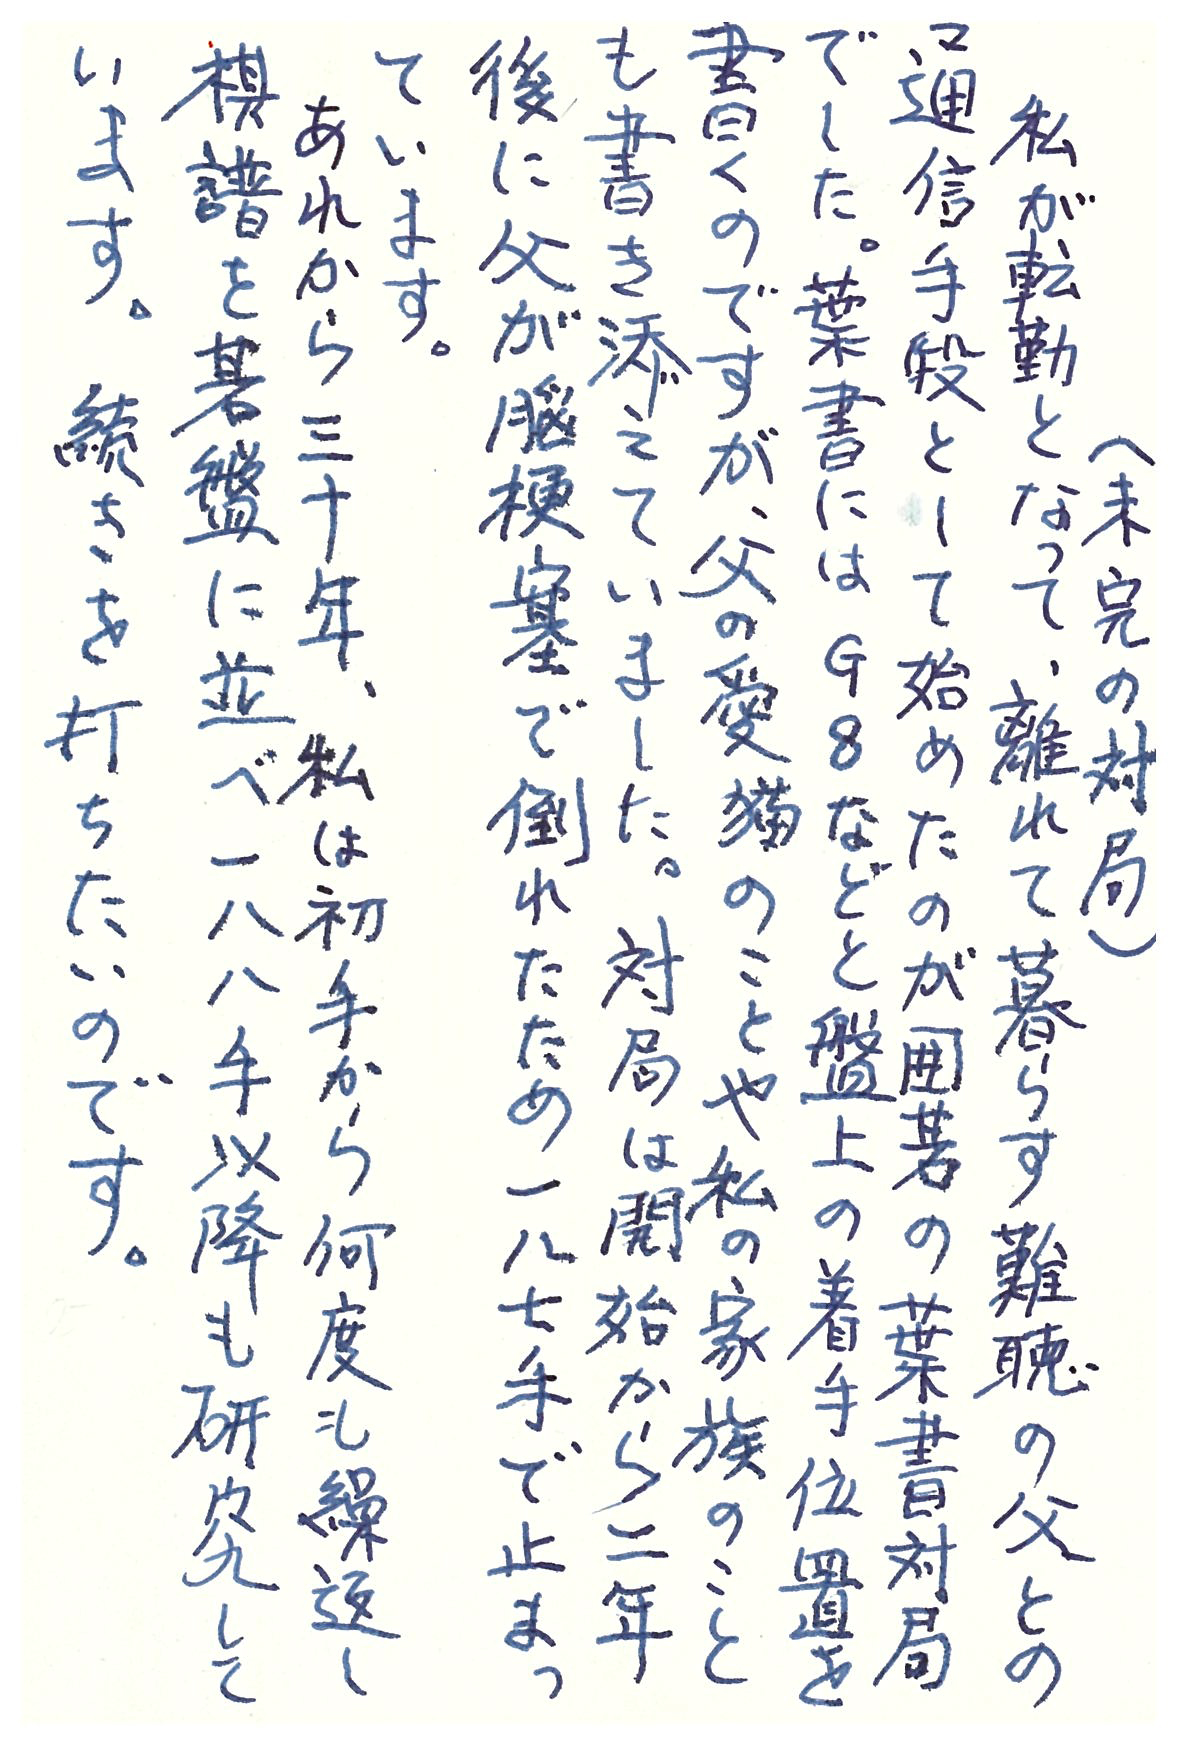 （未完の対局）
私が転勤となって、離れて暮らす難聴の父との
通信手段として始めたのが囲碁の葉書対局
でした。葉書にはG8などと盤上の着手位置を
書くのですが、父の愛猫のことや私の家族のこと
も書き添えていました。対局は開始から二年
後に父が脳梗塞で倒れたため一八七手で止まっ
ています。
あれから三十年、私は初手から何度も繰返し
棋譜を碁盤に並べ一八八手以降も研究して
います。続きを打ちたいのです。